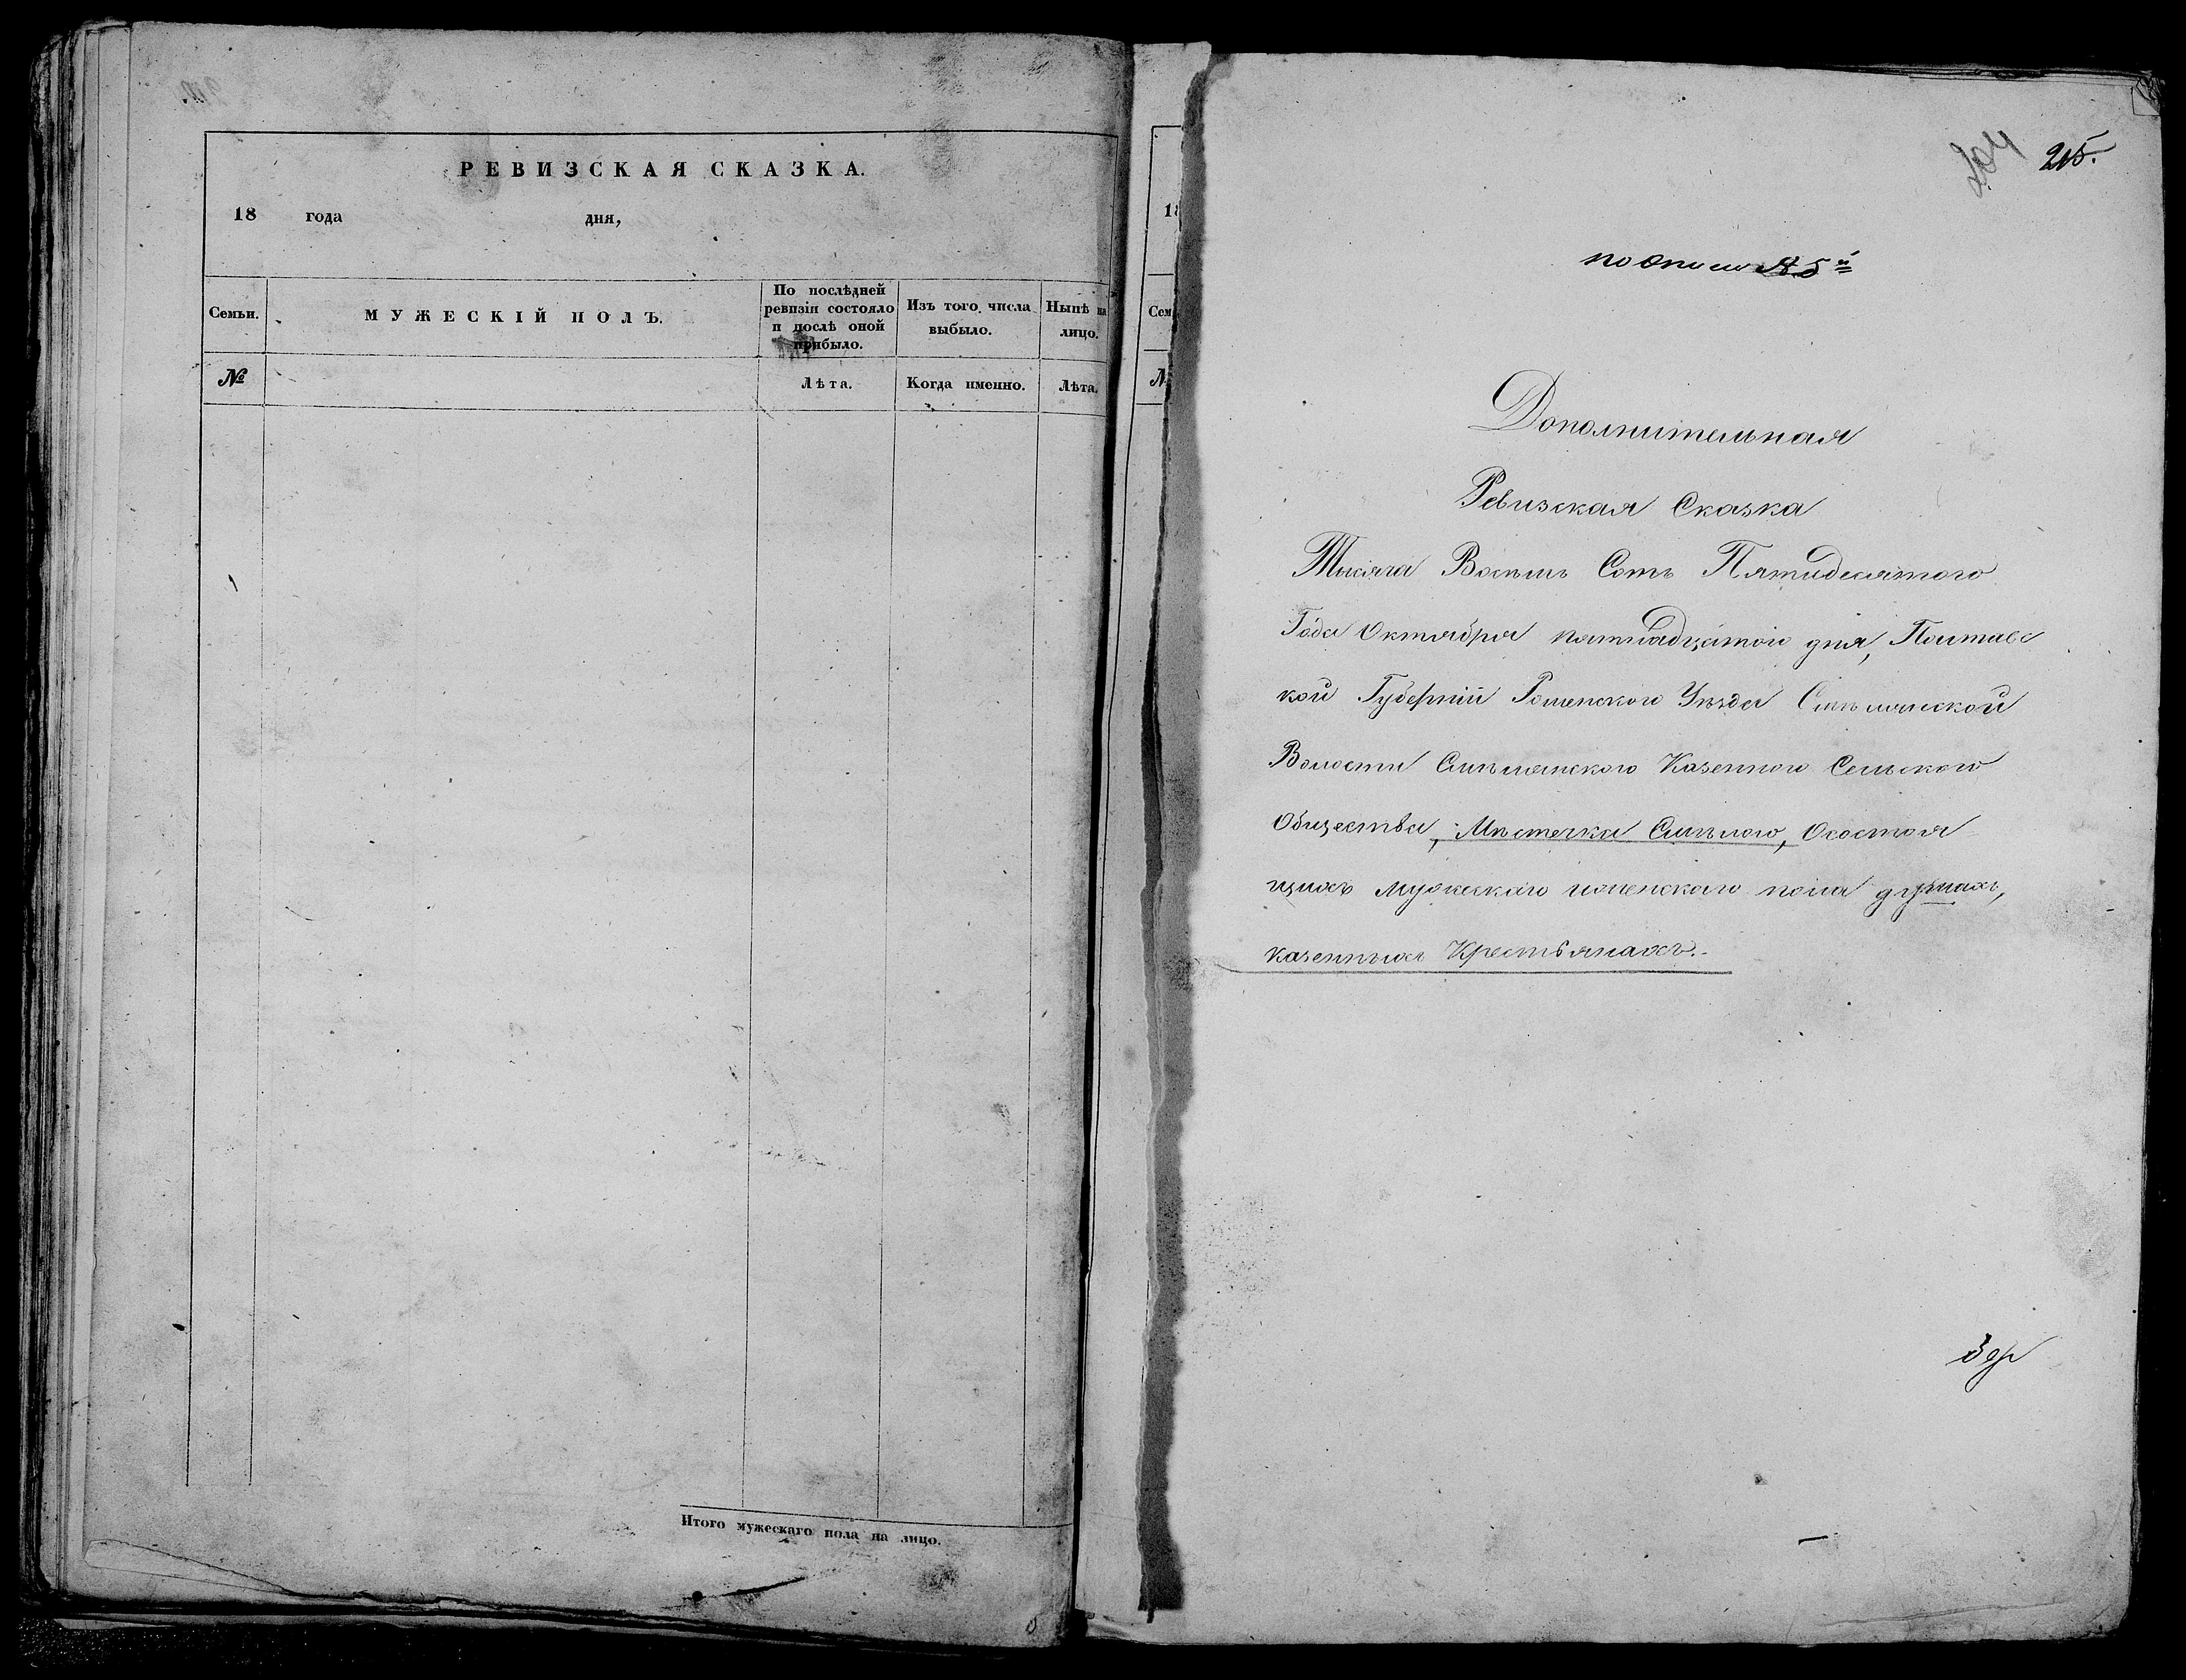 РЕВИЗСКАЯ СКАЗКА.
18 года дня,
Семьи.
МУЖЕСКІЙ ПОЛЪ.
По послѣдней
ревизіи состояло
и послѣ оной
прибыло.
Изъ того числа
выбыло.
Нынѣ на
лицо.
№
Лѣта.
Когда именно.
Лѣта.
Итого мужескаго пола на лицо.
18
Сем
№
204 215.
по описи № 5й
Дополнительная
Ревизская Сказка
Тысяча Восемь Сотъ Пятидесятого
Года Октября пятнадцатого дня, Полтавс
кой Губерніи Роменского Уѣзда Смѣлянской
Волости Смѣлянского Казенного Сельского
Общества, Мѣстечка Смѣлого, Осостоя
щихъ мужескаго иженскаго пола душахъ,
казенныхъ Крестьянахъ.-